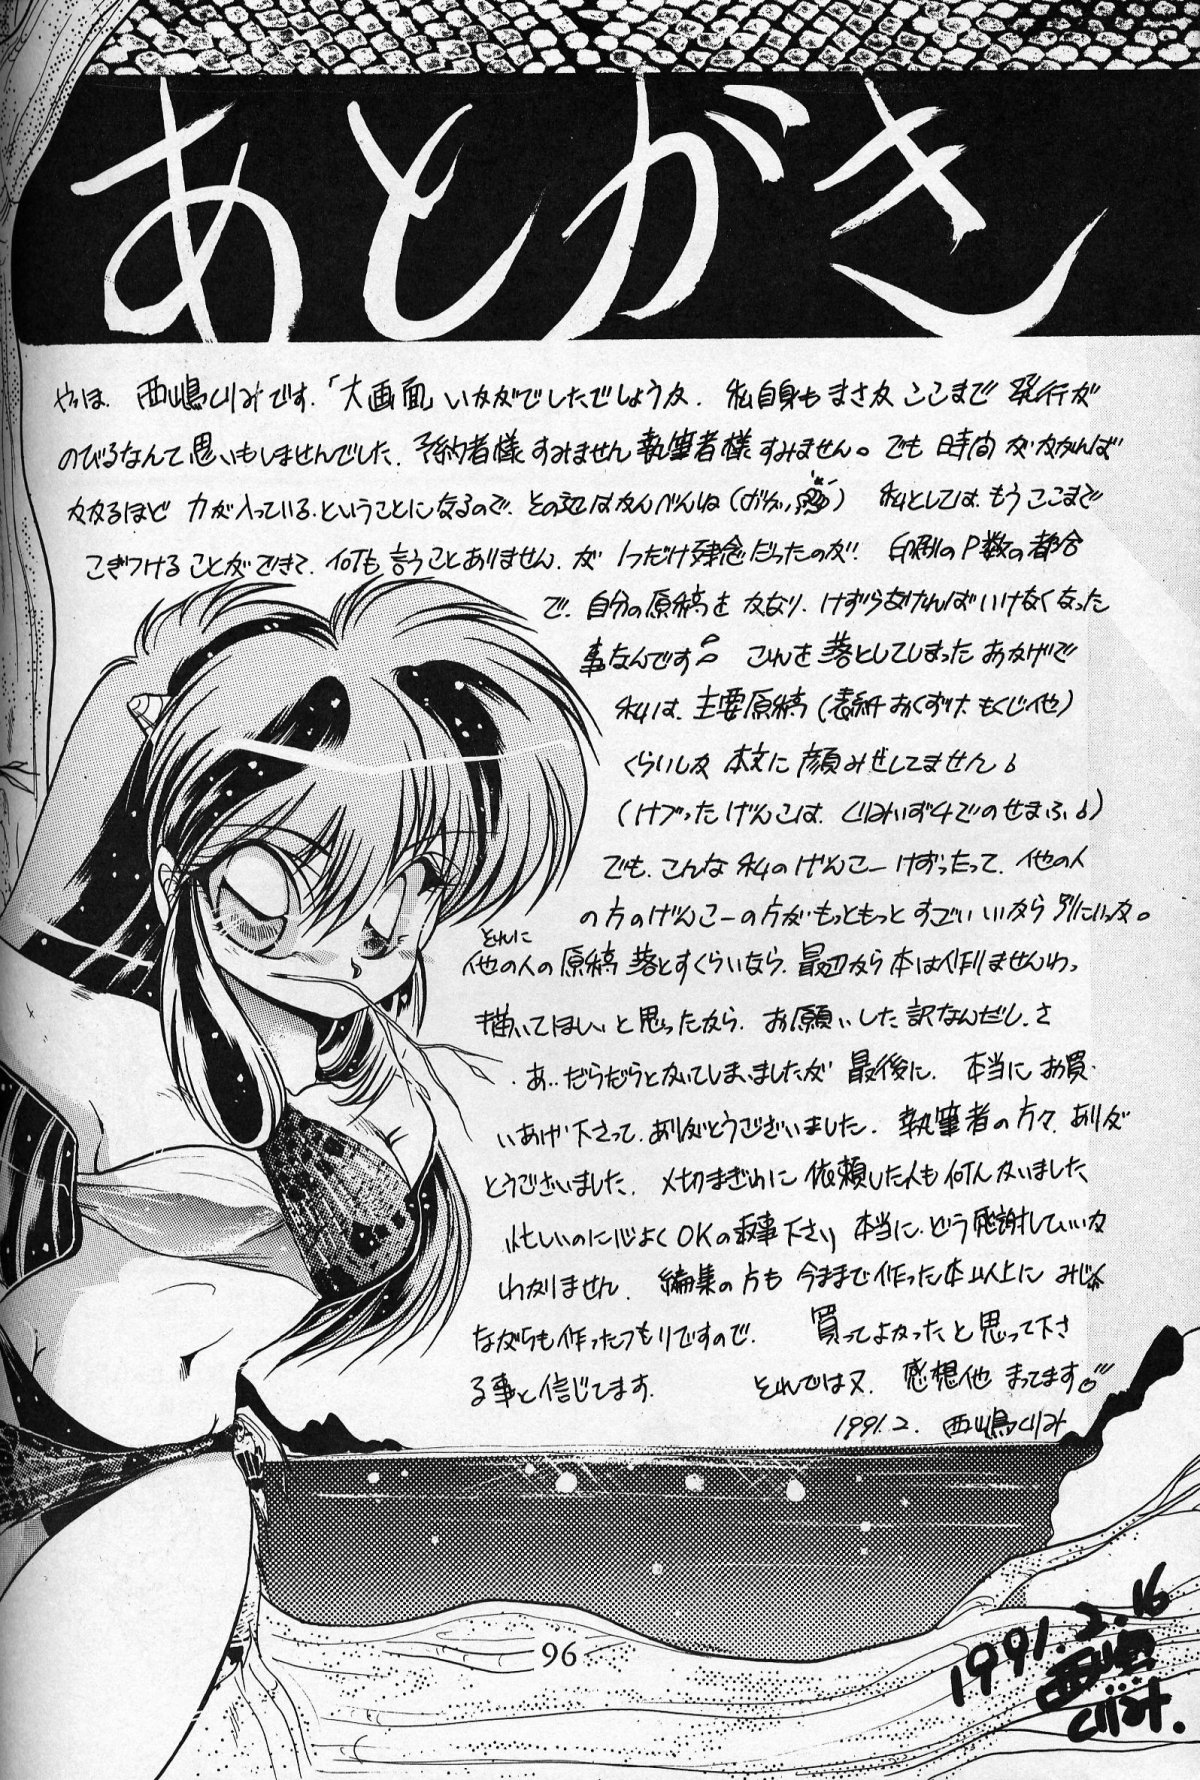 あとがき
やっほ、西嶋くりみです。「大画面」いかがでしたでしょうか。私自身もまさかここまで発行が
のびるなんて思いもしませんでした。予約者様すみません執筆者様すみません。でも時間がかかれば
かかるほど力が入っている、ということになるので、その辺はかんべんね
私としては、もうここまで
こぎつけることができて、何も言うことありません、が1つだけ残念だったのが!印刷のP数の都合
で、自分の原稿をかなり、けずらなければいけなくなった
事なんです。これを落としてしまったおかげで
私は、主要原稿(表紙おくずけ、もくじ他)
くらいしか本文に顔みせしてません
(けずったげんこは、くりみいず4でのせまふ)
でも、こんな私のげんこーけずったって、他の人
の方のげんこーの方がもっともっとすごいいなら別にいっか。
それに
他の人の原稿落とすくらいなら、最初から本は作りませんわっ
描いてほしいと思ったから、お願いした訳なんだし、さ
あ‥だらだらとかいてしまいましたが最後に、本当にお買
いあげ下さって、ありがとうございました。執筆者の方々、ありが
とうございました。〆切まぎわに依頼した人も何人かいました
忙しいのに心よくOKの返事下さり本当に、どう感謝していいか
わかりません。編集の方も今まで作った本以上にみじゅく
ながらも作ったつもりですので、買ってよかったと思って下さ
る事と信じてます。それでは又、感想他まってます
1991.2. 西嶋くりみ
96
1991.2.16
西嶋
くりみ.